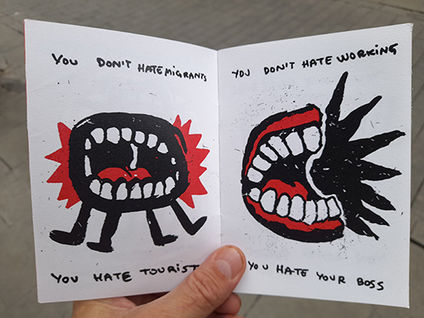 YOU DON'T HATE MIGRANTS
YOU HATE TOURIST
YOU DON'T HATE WORKING
YOU HATE YOUR BOSS